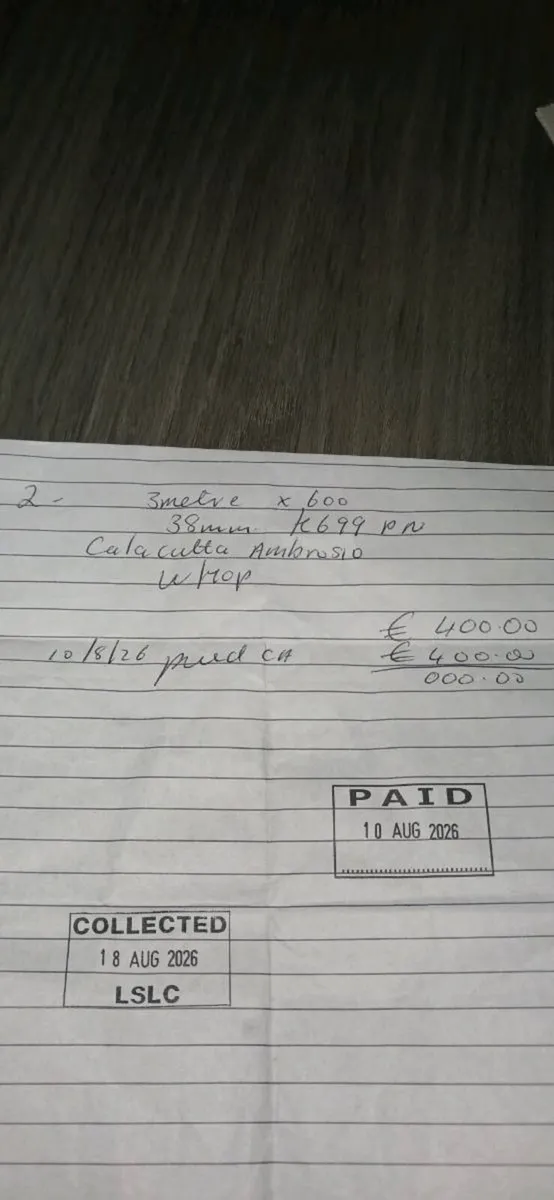 2 - 3metre x 600
38mm K699 PN
Calacutta Ambrosio
W/TOP
€ 400.00
10/8/26 paid CA € 400.00
000.00
PAID
10 AUG 2026
COLLECTED
18 AUG 2026
LSLC